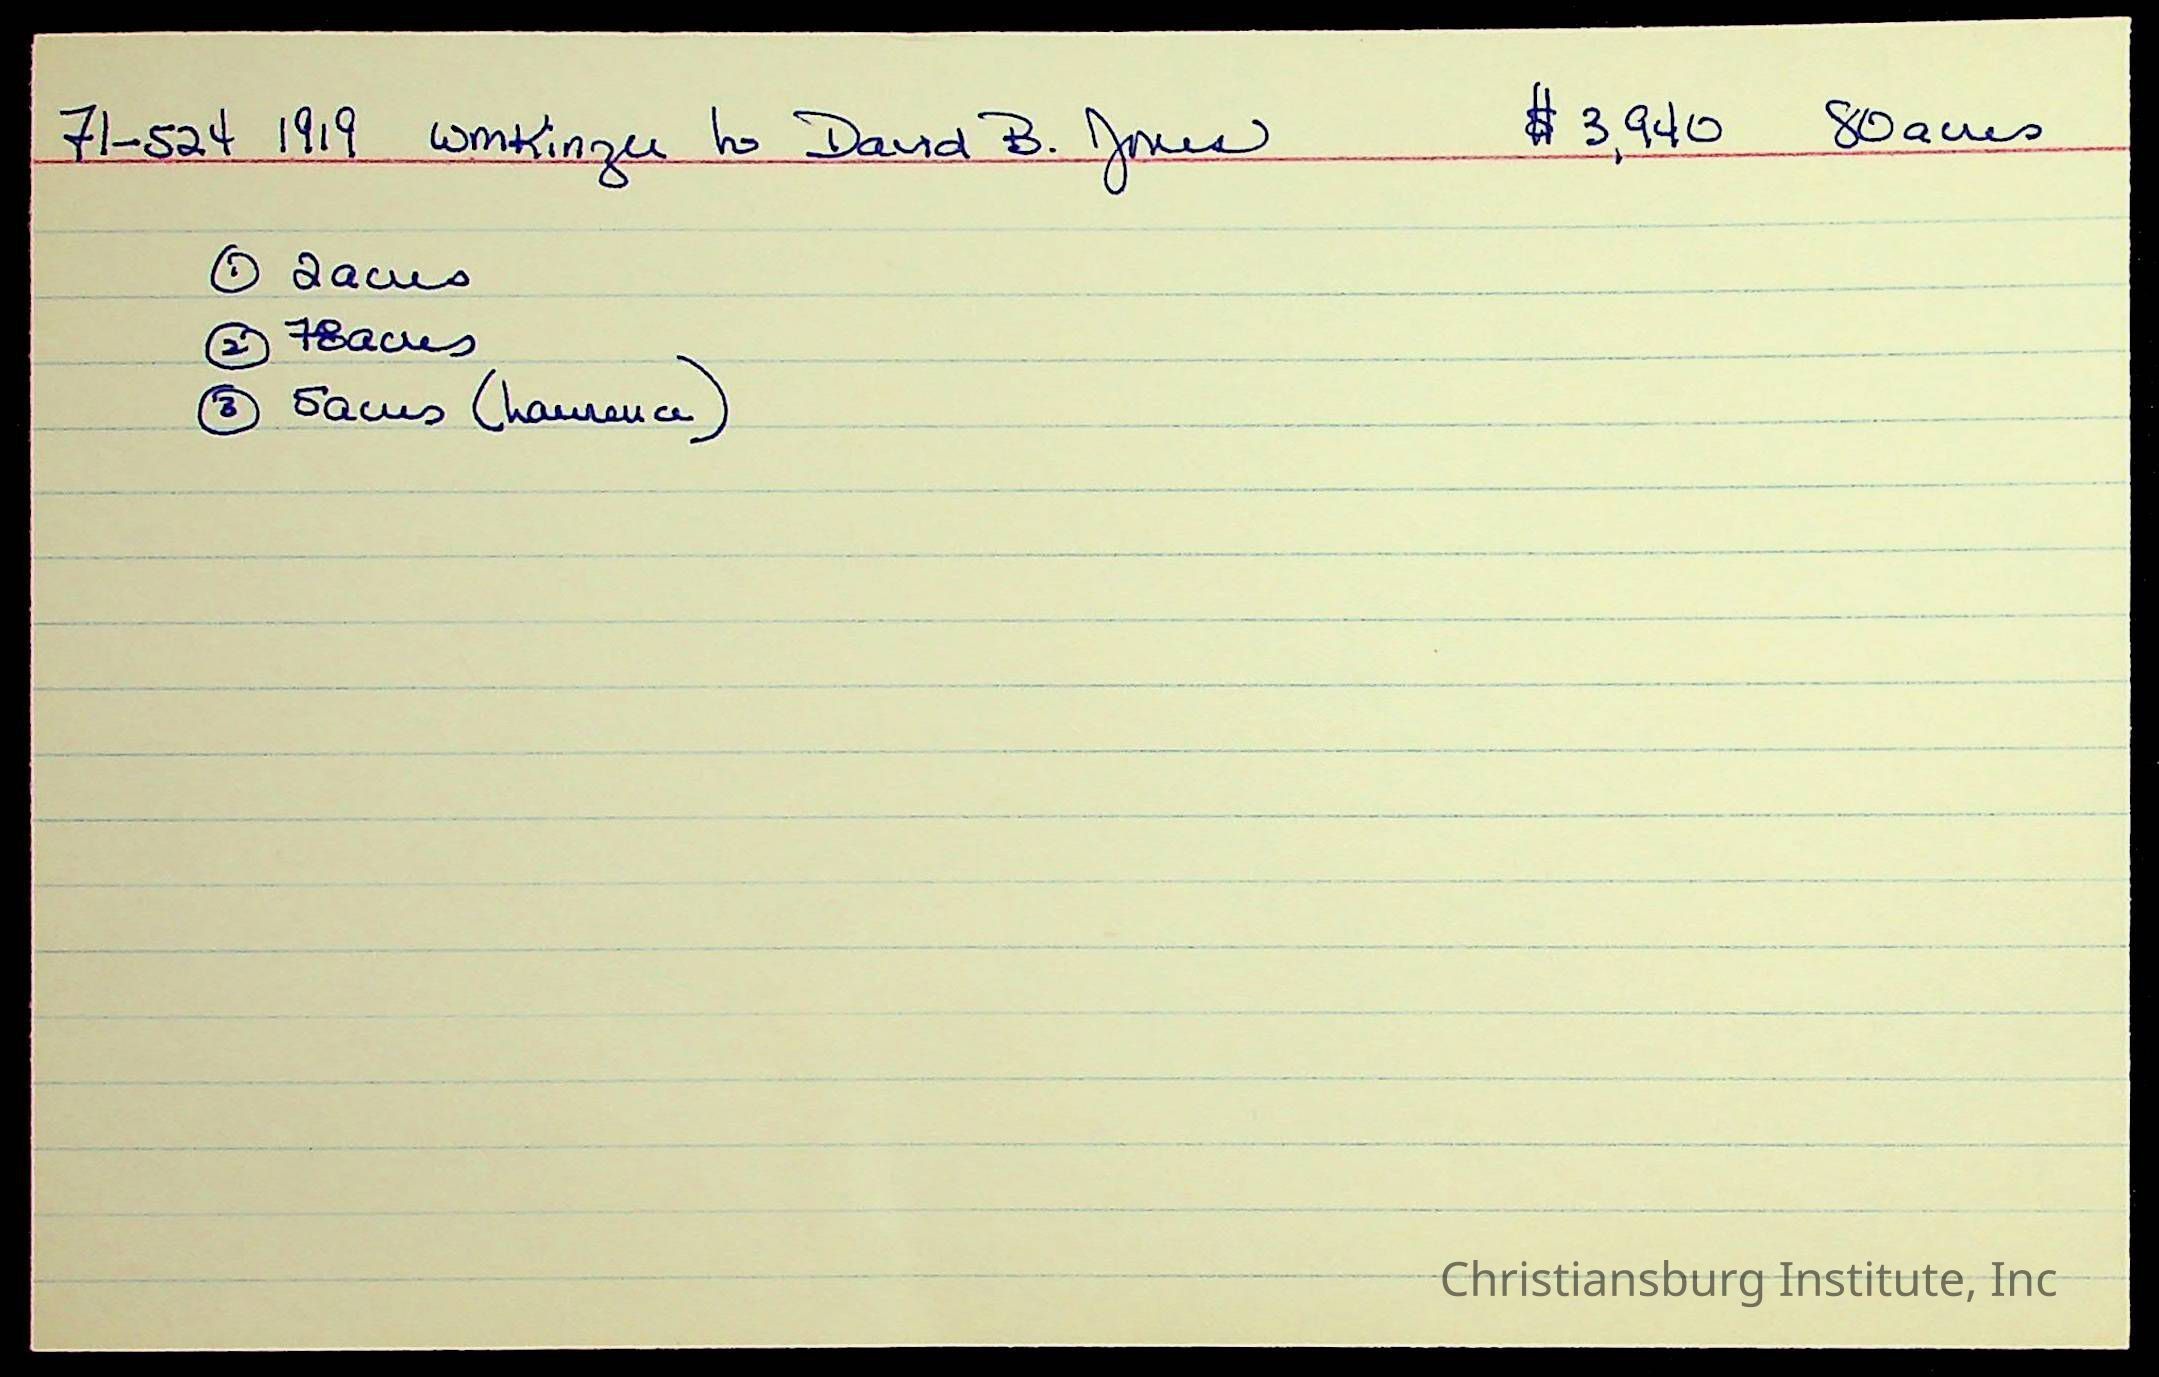 71-524 1919 Wm Kinzer to David B. Jones $3,940 80 acres
① 2 acres
② 78 acres
③ 5 acres (Lawrence)
Christiansburg Institute, Inc